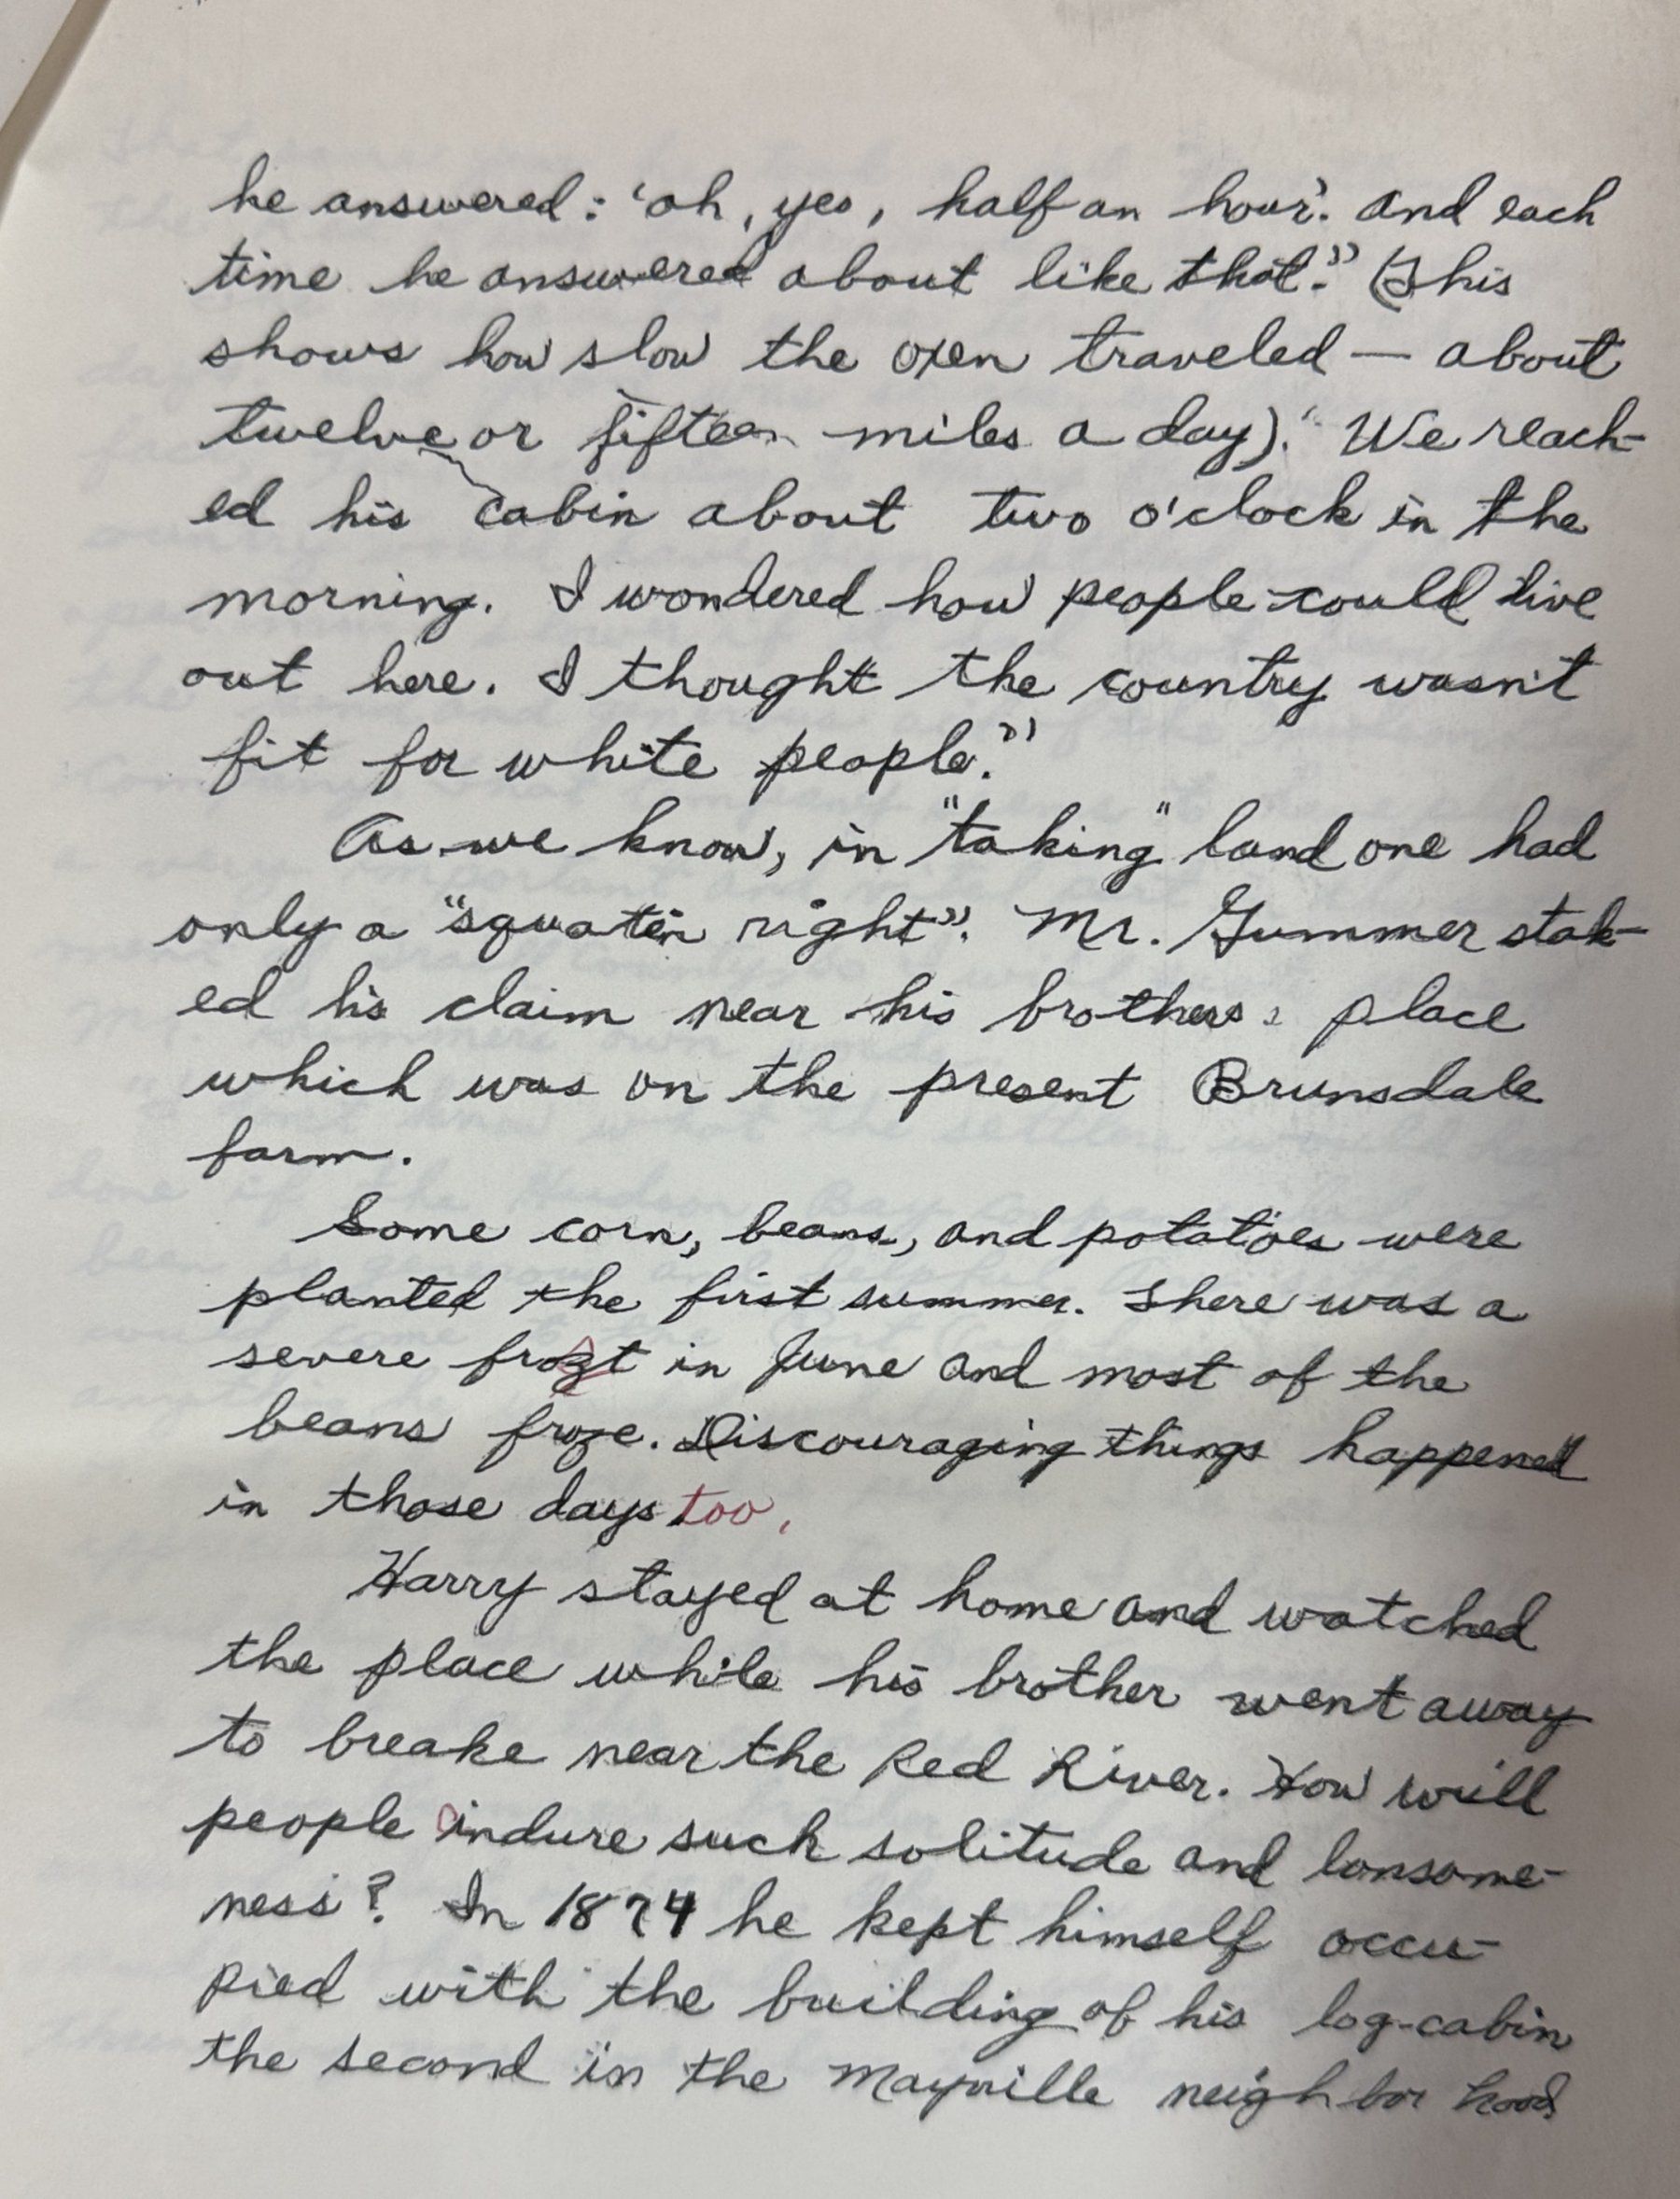 he answered: 'oh, yes, half an hour'. And each
time he answered about like that." (This
shows how slow the oxen traveled — about
twelve or fifteen miles a day). "We reach-
ed his cabin about two o'clock in the
morning. I wondered how people could live
out here. I thought the country wasn't
fit for white people."
As we know, in "taking" land one had
only a "squater right". Mr. Gummer stak-
ed his claim near his brothers place
which was on the present Brunsdale
farm.
Some corn, beans, and potatoes were
planted the first summer. There was a
severe frost in June and most of the
beans froze. Discouraging things happened
in those days too.
Harry stayed at home and watched
the place while his brother went away
to breake near the Red River. How will
people indure such solitude and lonsome-
ness? In 1874 he kept himself occu-
pied with the building of his log-cabin
the second in the Mayville neighbor hood